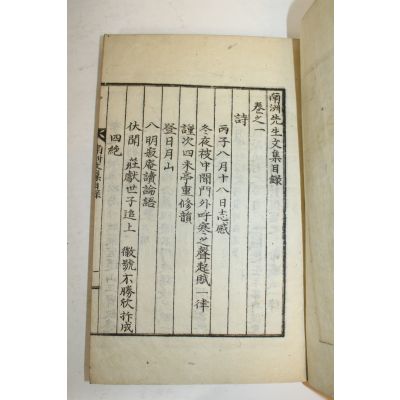 蘭洲先生文集目錄
卷之一
詩
丙子八月十八日志感
冬夜枝中聞門外呼寒之聲起賦一律
謹次四未亭重修韻
登日月山
八明寂庵讀論語
伏聞 莊獻世子追上 徽號不勝欣抃成
四絶
蘭洲文集目錄 一